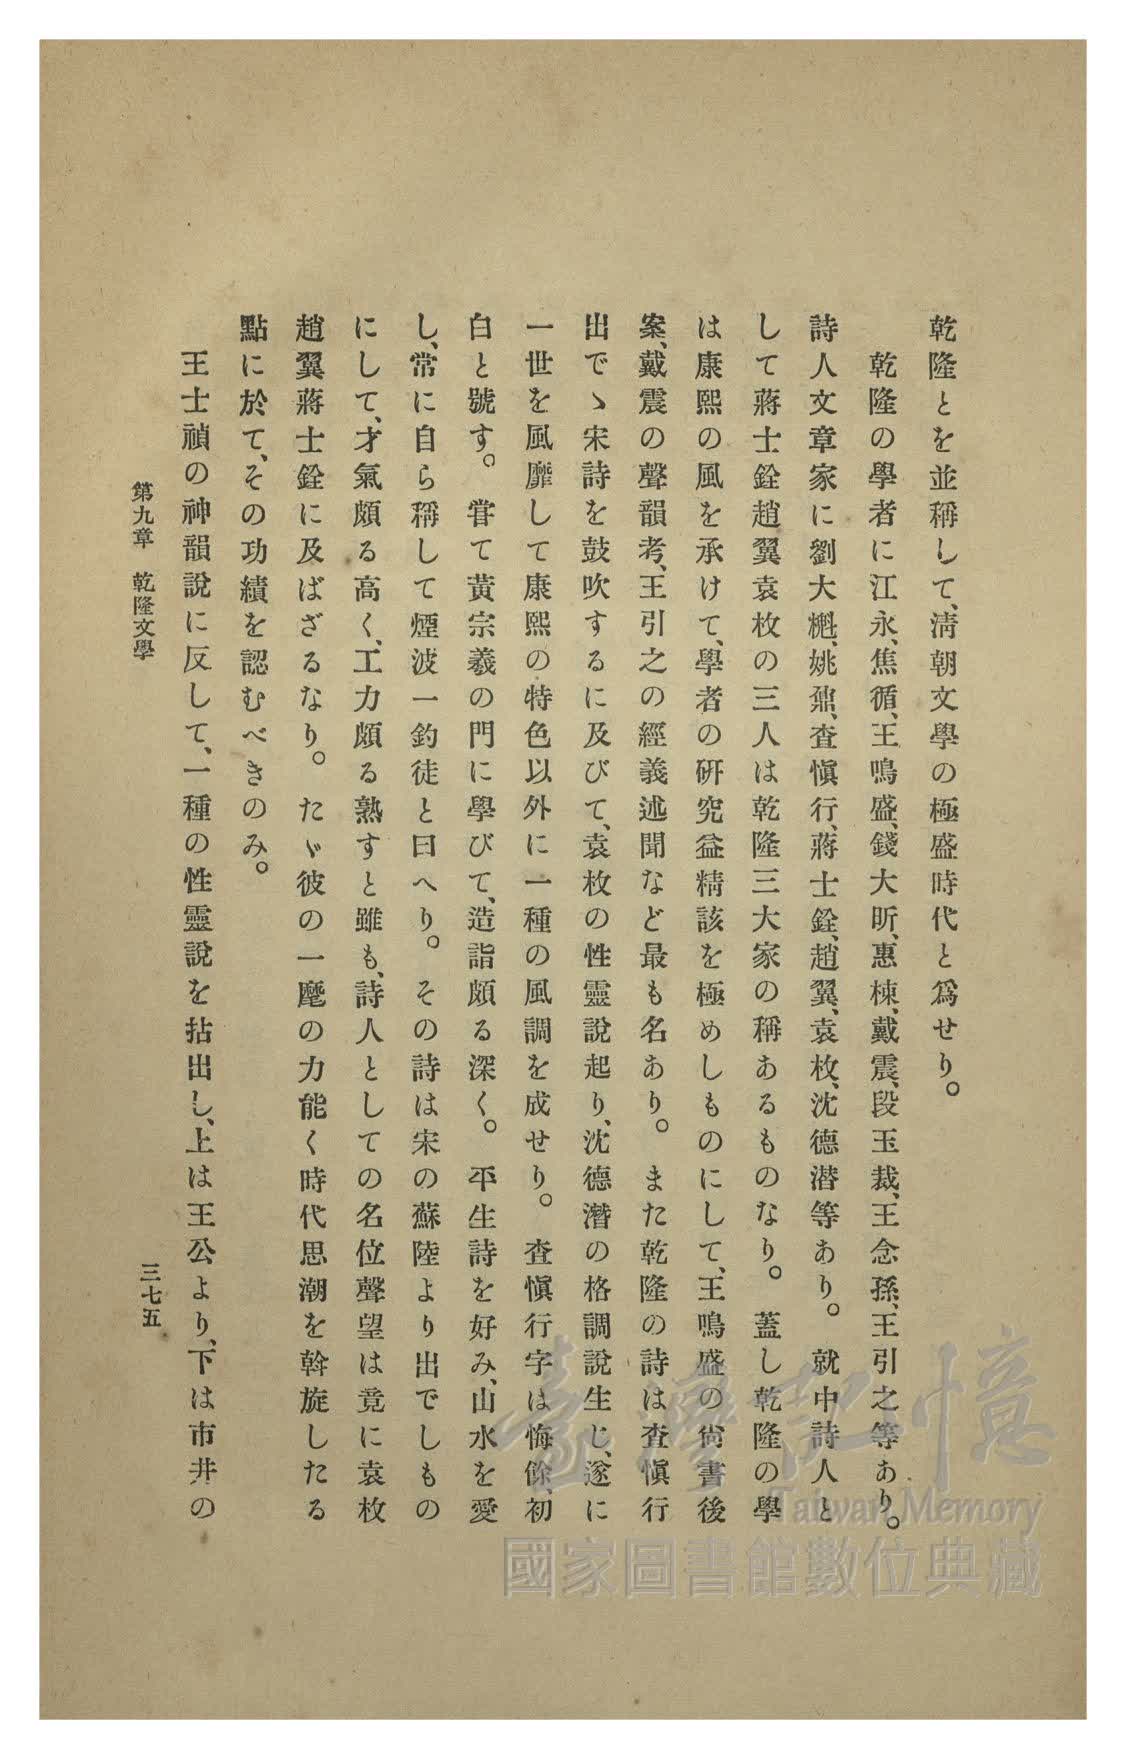 乾隆とを並稱して、淸朝文學の極盛時代と爲せり。
乾隆の學者に江永、焦循、王鳴盛、錢大昕、惠棟、戴震、段玉裁、王念孫、王引之等あり。
詩人文章家に劉大櫆、姚鼐、査愼行、蔣士銓、趙翼、袁枚、沈德潛等あり。就中詩人と
して蔣士銓趙翼袁枚の三人は乾隆三大家の稱あるものなり。蓋し乾隆の學
は康熙の風を承けて、學者の硏究益精該を極めしものにして、王鳴盛の尙書後
案、戴震の聲韻考、王引之の經義述聞など最も名あり。また乾隆の詩は査愼行
出でゝ宋詩を鼓吹するに及びて、袁枚の性靈說起り、沈德潛の格調說生じ、遂に
一世を風靡して康熙の特色以外に一種の風調を成せり。査愼行字は悔餘、初
白と號す。甞て黃宗羲の門に學びて、造詣頗る深く。平生詩を好み、山水を愛
し、常に自ら稱して煙波一釣徒と曰へり。その詩は宋の蘇陸より出でしもの
にして、才氣頗る高く、工力頗る熟すと雖も、詩人としての名位聲望は竟に袁枚
趙翼蔣士銓に及ばざるなり。たゞ彼の一麾の力能く時代思潮を斡旋したる
點に於て、その功績を認むべきのみ。
王士禎の神韻說に反して、一種の性靈說を拈出し、上は王公より、下は市井の
第九章　乾隆文學
三七五
臺灣記憶
Taiwan Memory
國家圖書館數位典藏